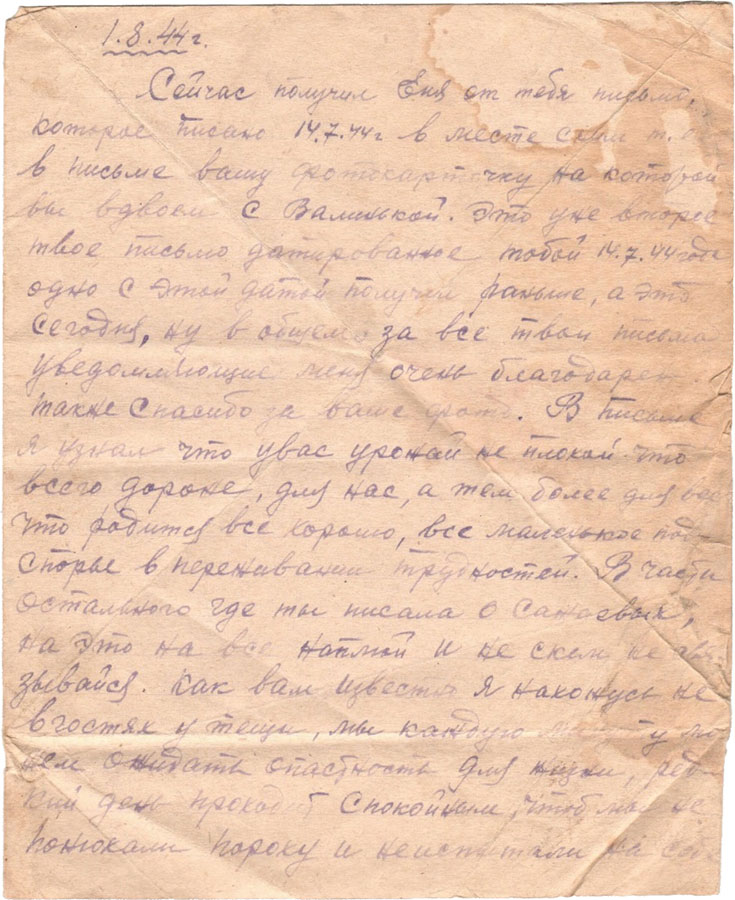 1.8.44 г.
Сейчас получил Еня от тебя письмо,
которое писано 14.7.44 г в месте с ним т.е.
в письме вашу фотокарточку на которой
вы вдвоем с Валинькой. Это уже второе
твое письмо датированное тобой 14.7.44 года
одно с этой датой получил раньше, а это
сегодня, ну в общем за все твои письма
уведомляющие меня очень благодарен
также спасибо за ваше фото. В письме
я узнал что увас урожай не плохой что
всего дороже, для нас, а тем более для вас
что родится все хорошо, все маленькое под-
спорье в переживании трудностей. В части
остального где ты писала о
на это на все наплюй и не скем не свя
зывайся. Как вам известно я нахожусь не
вгостях у тещи, мы каждую минуту мо
жем ожидать опастность для жизни, ред-
кий день проходит спокойным, чтоб мы не
понюхали пороху и неиспытали на себе